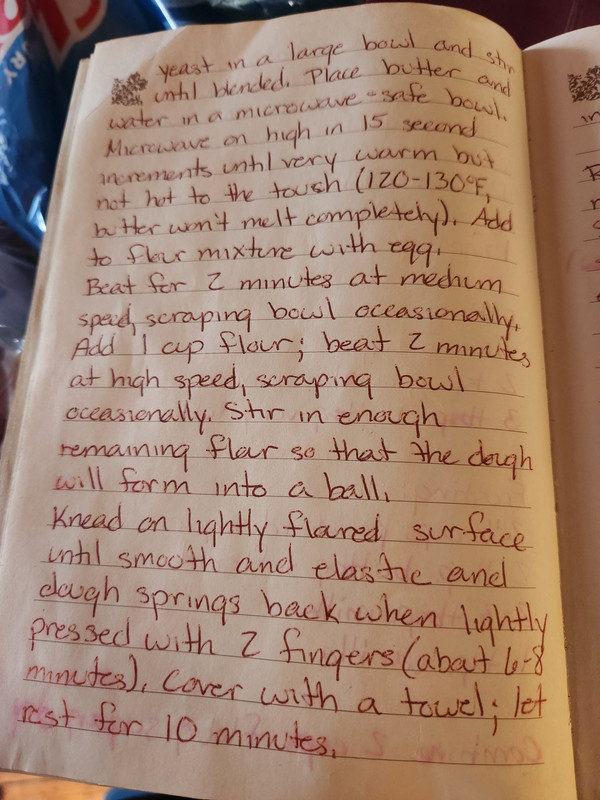 yeast in a large bowl and stir
until blended. Place butter and
water in a microwave-safe bowl.
Microwave on high in 15 second
increments until very warm but
not hot to the touch (120-130°F,
butter won't melt completely). Add
to flour mixture with egg.
Beat for 2 minutes at medium
speed, scraping bowl occasionally.
Add 1 cup flour; beat 2 minutes
at high speed, scraping bowl
occasionally. Stir in enough
remaining flour so that the dough
will form into a ball.
Knead on lightly floured surface
until smooth and elastic and
dough springs back when lightly
pressed with 2 fingers (about 6-8
minutes). Cover with a towel; let
rest for 10 minutes.